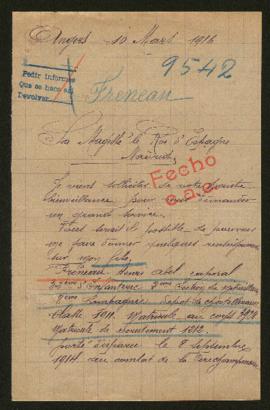 Angers 10 Mars 1916
9542
Pedir informes
Que se hace en
Devolver
Freneau
Sa Majesté le Roi d'Espagne
Madrid
Fecho
Je viens solliciter de votre haute
bienveillance pour vous demander
un grand service
vous serait il possible de pouvoir
me faire donner quelques renseignements
sur mon fils
Freneau abel caporal
d'Infanterie 2ème Section de
8ème Compagnie Dépot de
Classe 1911. Matricule au corps
Matricule de recrutement 1212.
porté disparu le 8 septembre
1914 au combat de la Fère champenoise